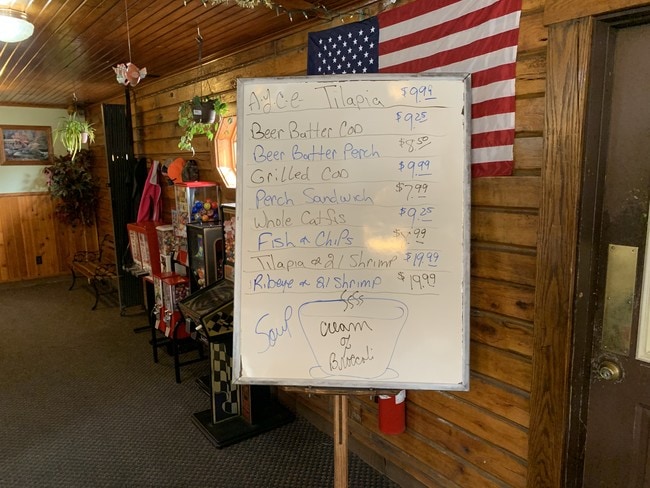 A-Y-C-E- Tilapia $9.99
Beer Batter Cod $9.25
Beer Batter Perch $8.50
Grilled Cod $9.99
Perch Sandwich $7.99
Whole Catfis $9.25
Fish & Chips
Tilapia & 21 Shrimp $19.99
Ribeye & 21 Shrimp $19.99
Soup
cream
of
Broccoli